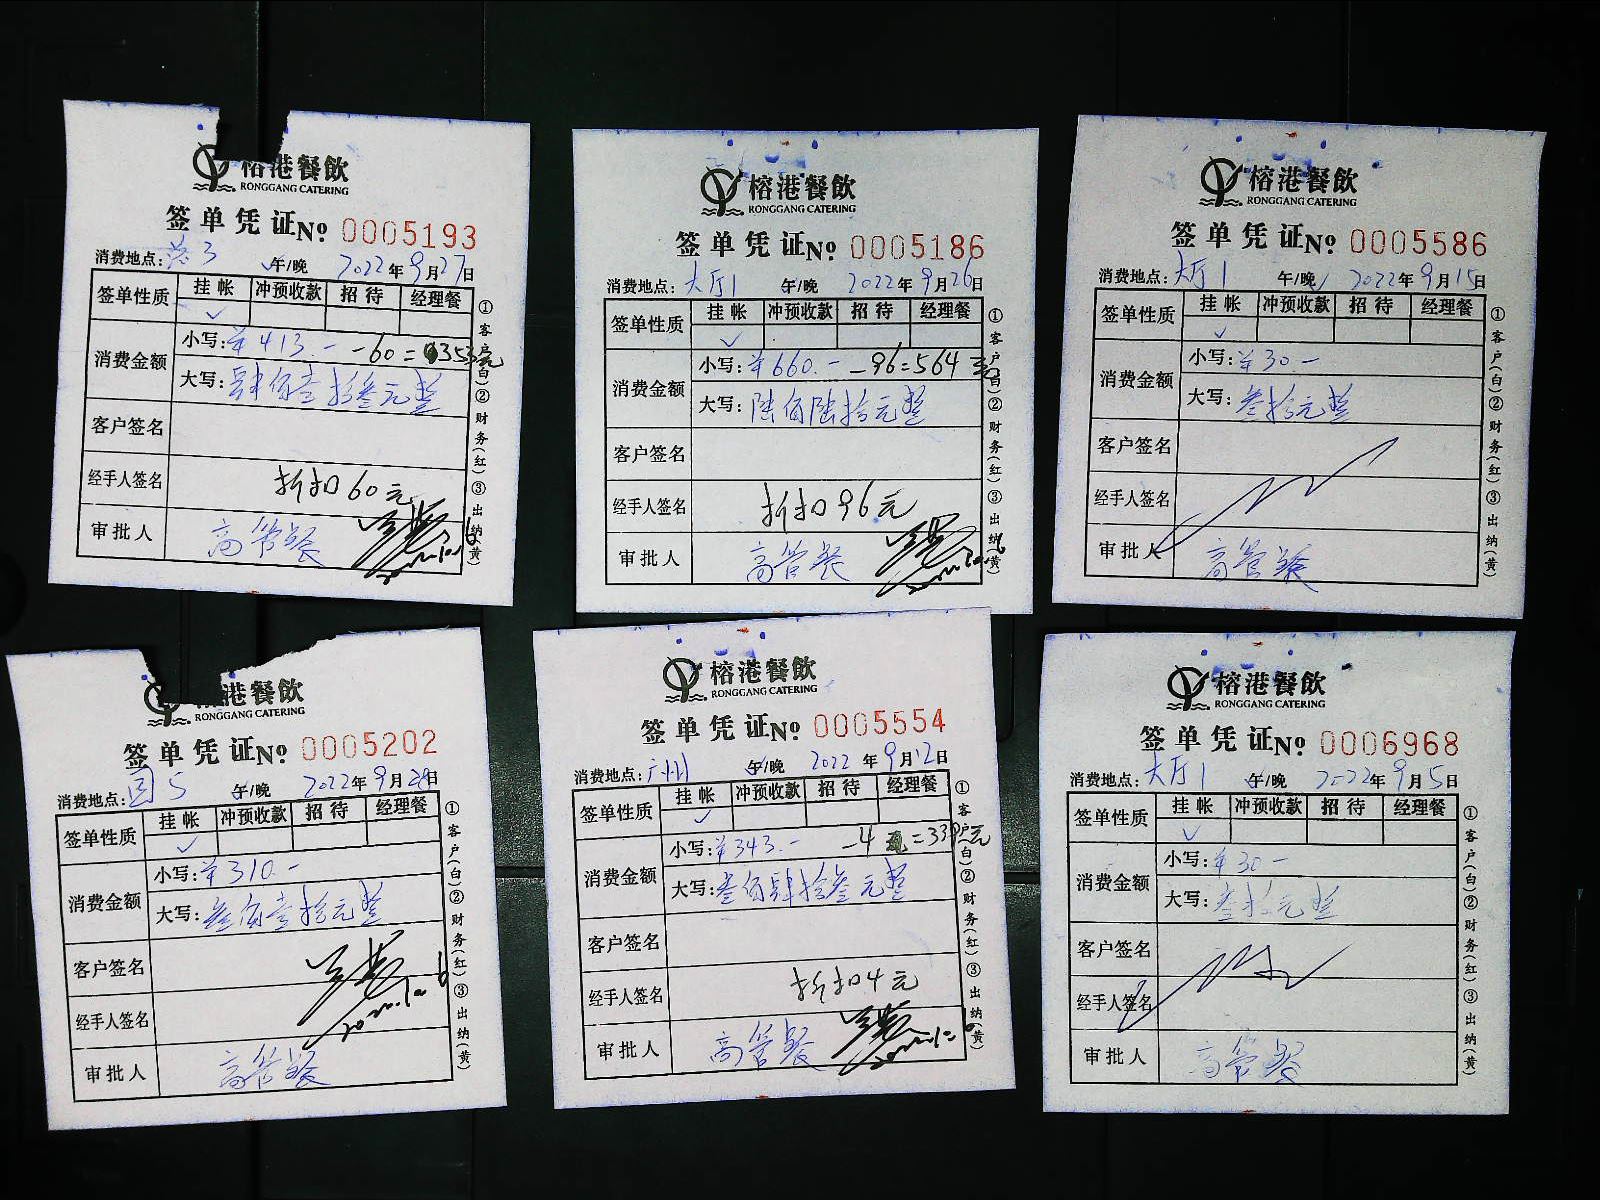 榕港餐飲
RONGGANG CATERING
签单凭证№ 0005193
消费地点: 3 午/晚 2022年9月27日
签单性质 挂帐 冲预收款 招待 经理餐
✓
消费金额 小写:¥413.- -60=353元
大写:肆佰壹拾叁元整
客户签名
经手人签名 折扣60元
审批人 高管餐
①客户(白)②财务(红)③出纳(黄)
榕港餐飲
RONGGANG CATERING
签单凭证№ 0005186
消费地点:大厅1 午/晚 2022年9月26日
签单性质 挂帐 冲预收款 招待 经理餐
✓
消费金额 小写:¥660.- -96=564元
大写:陆佰陆拾元整
客户签名
经手人签名 折扣96元
审批人 高管餐
①客户(白)②财务(红)③出纳(黄)
榕港餐飲
RONGGANG CATERING
签单凭证№ 0005586
消费地点:大厅1 午/晚✓ 2022年9月15日
签单性质 挂帐 冲预收款 招待 经理餐
✓
消费金额 小写:¥30-
大写:叁拾元整
客户签名
经手人签名
审批人 高管餐
①客户(白)②财务(红)③出纳(黄)
港餐飲
RONGGANG CATERING
签单凭证№ 0005202
消费地点: 5 午/晚 2022年9月28日
签单性质 挂帐 冲预收款 招待 经理餐
✓
消费金额 小写:¥310.-
大写:叁佰壹拾元整
客户签名
经手人签名
审批人 高管餐
①客户(白)②财务(红)③出纳(黄)
榕港餐飲
RONGGANG CATERING
签单凭证№ 0005554
消费地点:广州 午/晚 2022年9月12日
签单性质 挂帐 冲预收款 招待 经理餐
✓
消费金额 小写:¥343.- -4=339元
大写:叁佰肆拾叁元整
客户签名
经手人签名 折扣4元
审批人 高管餐
①客户(白)②财务(红)③出纳(黄)
榕港餐飲
RONGGANG CATERING
签单凭证№ 0006968
消费地点:大厅1 午/晚 2022年9月5日
签单性质 挂帐 冲预收款 招待 经理餐
✓
消费金额 小写:¥30-
大写:叁拾元整
客户签名
经手人签名
审批人 高管餐
①客户(白)②财务(红)③出纳(黄)